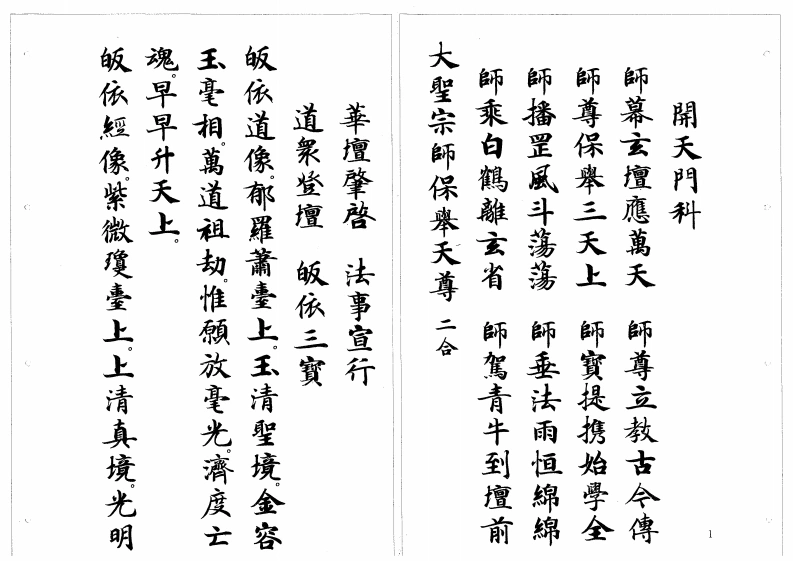 開天門科
師幕玄壇應萬天　師尊立教古今傳
師尊保舉三天上　師寶提携始學全
師播罡風斗蕩蕩　師垂法雨恒綿綿
師乘白鶴離玄省　師駕青牛到壇前
大聖宗師保舉天尊　二合
1
華壇肇啓　法事宣行
道衆登壇　皈依三寶
皈依道像。郁羅蕭臺上。玉清聖境。金容
玉毫相。萬道祖劫。惟願放毫光。濟度亡
魂。早早升天上。
皈依經像。紫微瓊臺上。上清真境。光明